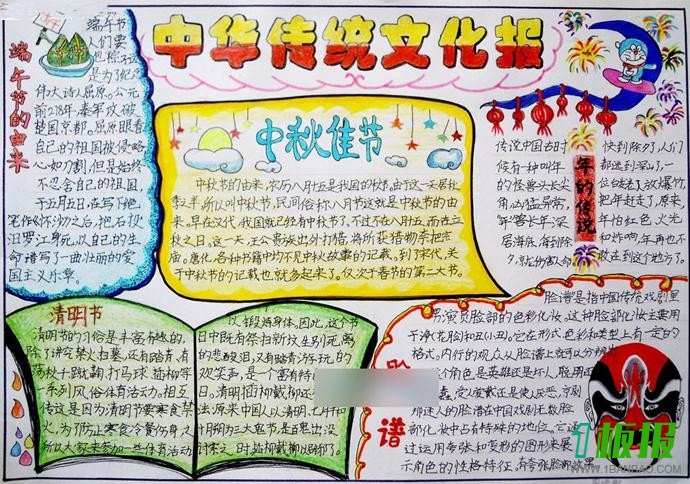 中华传统文化报
端午节的由来
端午节
人们要
吃粽子这
是为了纪念
伟大诗人屈原。公元
前278年,秦军攻破
楚国京都。屈原眼看
自己的祖国被侵略
心如刀割,但是始终
不忍舍自己的祖国
于五月五日,在写下绝
笔作《怀沙》之后,抱石投
汨罗江身死,以自己的生命
谱写了一曲壮丽的爱
国主义乐章。
中秋佳节
中秋节的由来,农历八月十五是我国的秋节,由于这一天居秋
季三半,所以叫中秋节,民间俗称八月节这就是中秋节的由
来。早在汉代,我国就已经有中秋节了,不过不在八月十五,而在立
秋之日,这一天,王公贵族出外打猎,将所获猎物祭把宗
庙。唐代,各种书籍中均不见中秋故事的记载,到了宋代,关
于中秋节的记载也就多起来了。仅次于春节的第二大节。
年的传说
传说中国古时
候有一种叫年
的怪兽头长尖
角,凶猛异常,
年兽长年深
居海底,每到除
夕,
快到除夕人们
都逃到深山,
一位老人放爆竹,
把年赶走了,原来,
年怕红色,火光
和炸响,年再也不
敢到这个地方了。
清明节
清明节的习俗是丰富有趣的,
除了讲究禁火扫墓,还有踏青,有
荡秋千踢鞠打马球插柳等
一系列风俗体育活动。相互
传这是因为清明节要寒食禁
火,为了防止寒食冷餐伤身,
所以大家来参加一些体育活动
以锻炼身体,因此,这个节
日中既有祭扫新坟生别死离
的悲酸泪,又有踏青游玩的
欢笑声,是一个富有特
清明插柳戴柳还
法原来中国人以清明七月半和
十月朔为三大鬼节,是百鬼出没
讨索之时插柳戴柳以辟邪了。
脸谱
脸谱是指中国传统戏剧里
男演员脸部的色彩化妆,这种脸部化妆主要用
于净(花脸)和丑(小丑),它在形式色彩和类型上有一定的
格式,内行的观众从脸谱上就可以分辨出
个角色是英雄还是坏人,聪明
受人爱戴还是使人厌恶,京剧
那迷人的脸谱在中国戏剧无数脸
部化妆中占有特殊的地位,它通
过运用夸张和变形的图形来展
示角色的性格特征,
1板报
WWW.1BANBAO.COM